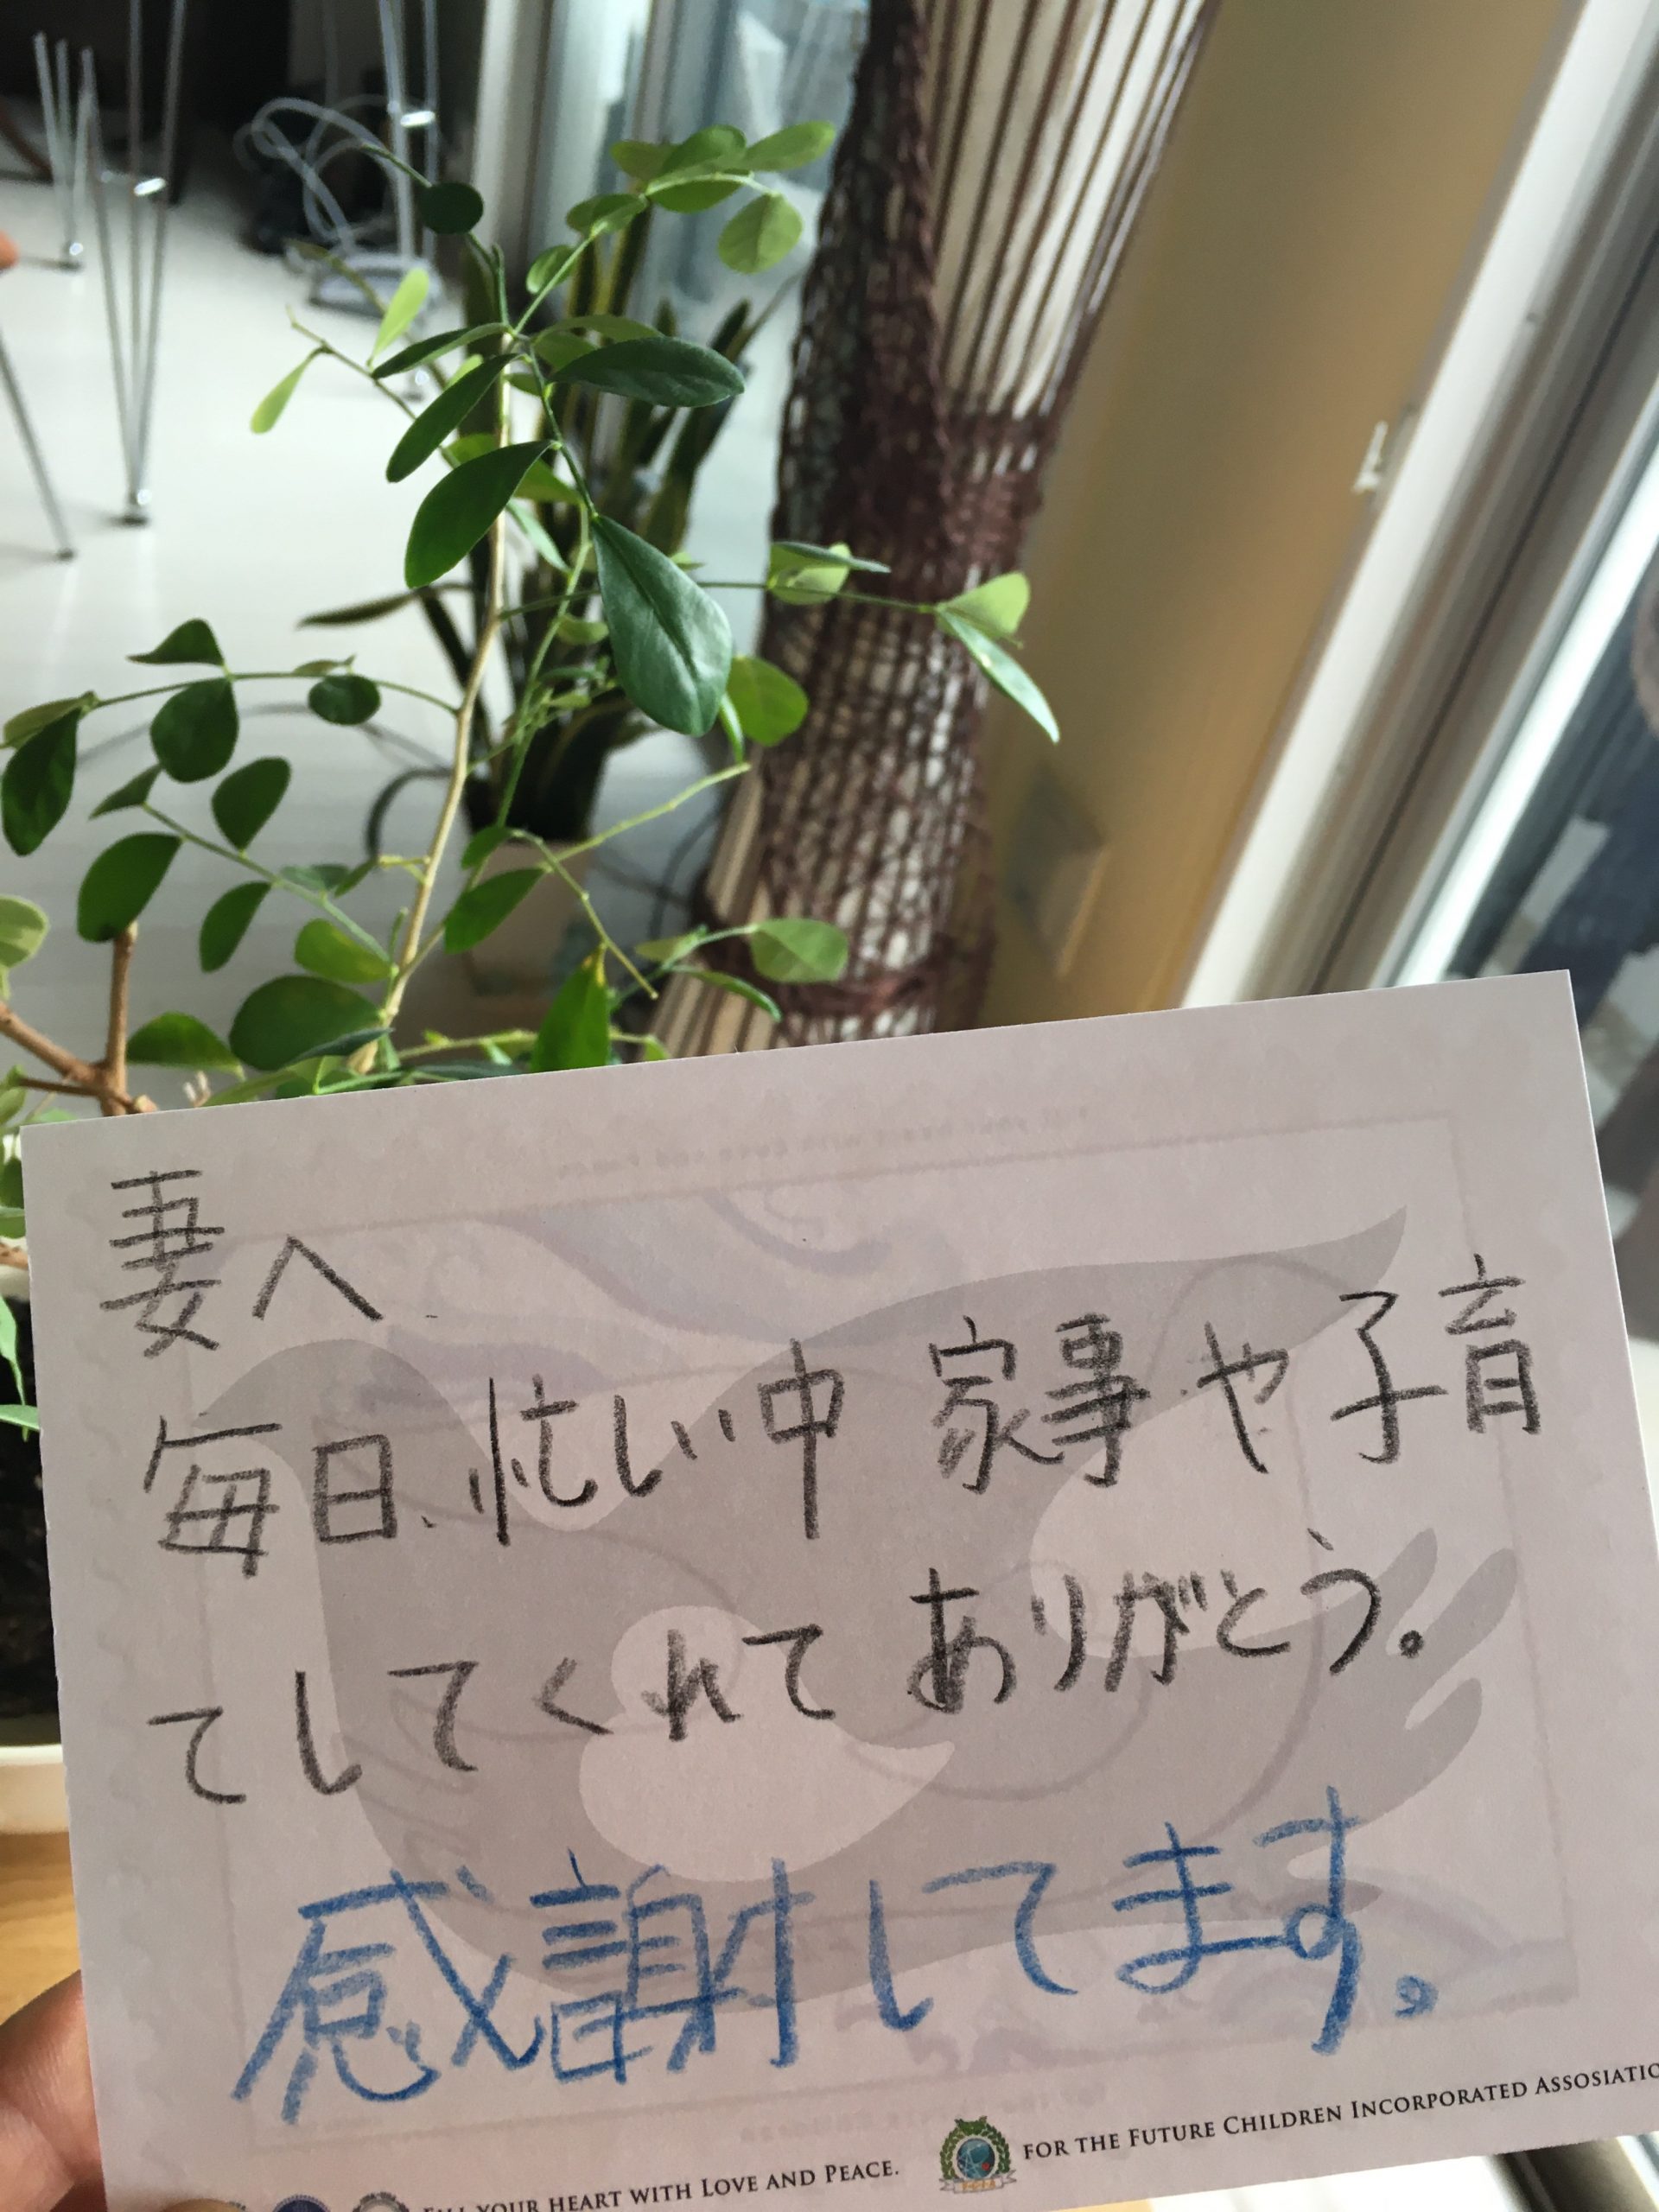 妻へ
毎日、忙しい中 家事や子育
てしてくれて ありがとう。
感謝してます。
YOUR HEART WITH LOVE AND PEACE.
FOR THE FUTURE CHILDREN INCORPORATED